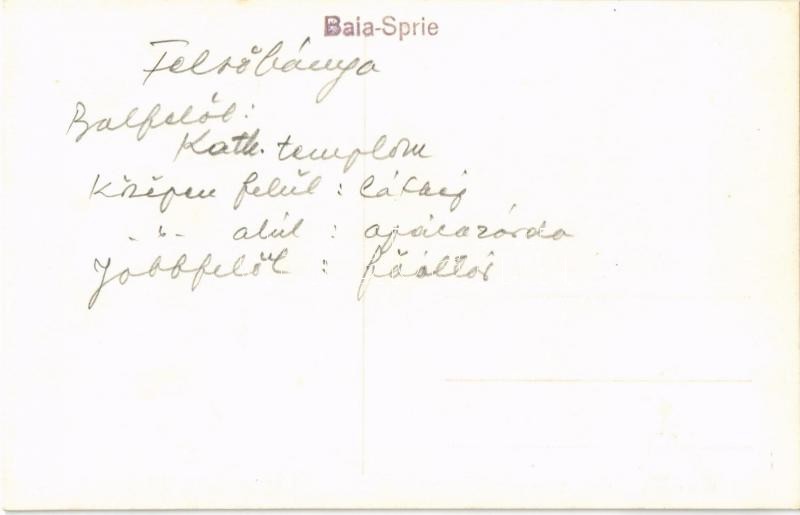 Baia-Sprie
Felsőbánya
Balfelől:
Kath. templom
Középen felül : látkép
- " - alúl : apácazárda
Jobbfelől : főoltár